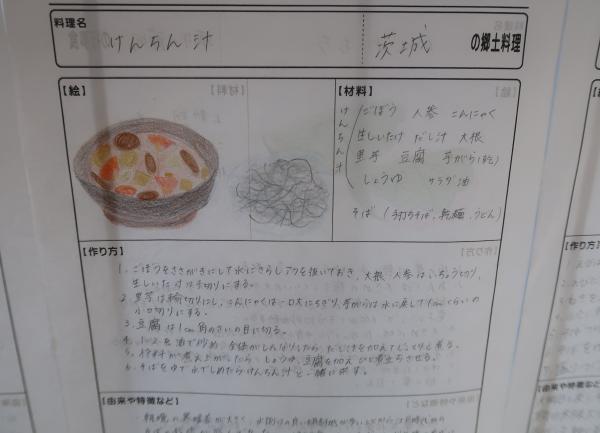 料理名
けんちん汁
茨城 の郷土料理
【絵】
【材料】
けんちん汁
ごぼう 人参 こんにゃく
生しいたけ だし汁 大根
里芋 豆腐 芋がら(乾)
しょうゆ サラダ油
そば (手打ちそば、乾麺、うどん)
【作り方】
1. ごぼうをささがきにして水にさらしアクを抜いておき、大根、人参はいちょう切り、
生しいたけは千切りにする。
2. 里芋は輪切りにし、こんにゃくは一口大にちぎり、芋がらは水に戻して1cmくらいの
小口切りにする。
3. 豆腐は1cm角のさいの目に切る。
4. を油で炒め、全体がしんなりしたら、だし汁を加えてじっくり煮る。
5. が煮え上がったら、しょうゆ、豆腐を加え、ひと煮立ちさせる。
6. そばをゆで、水でしめたらけんちん汁と一緒に出す。
【由来や特徴など】
朝晩の寒暖差が大きく、水はけの良い傾斜地が多い